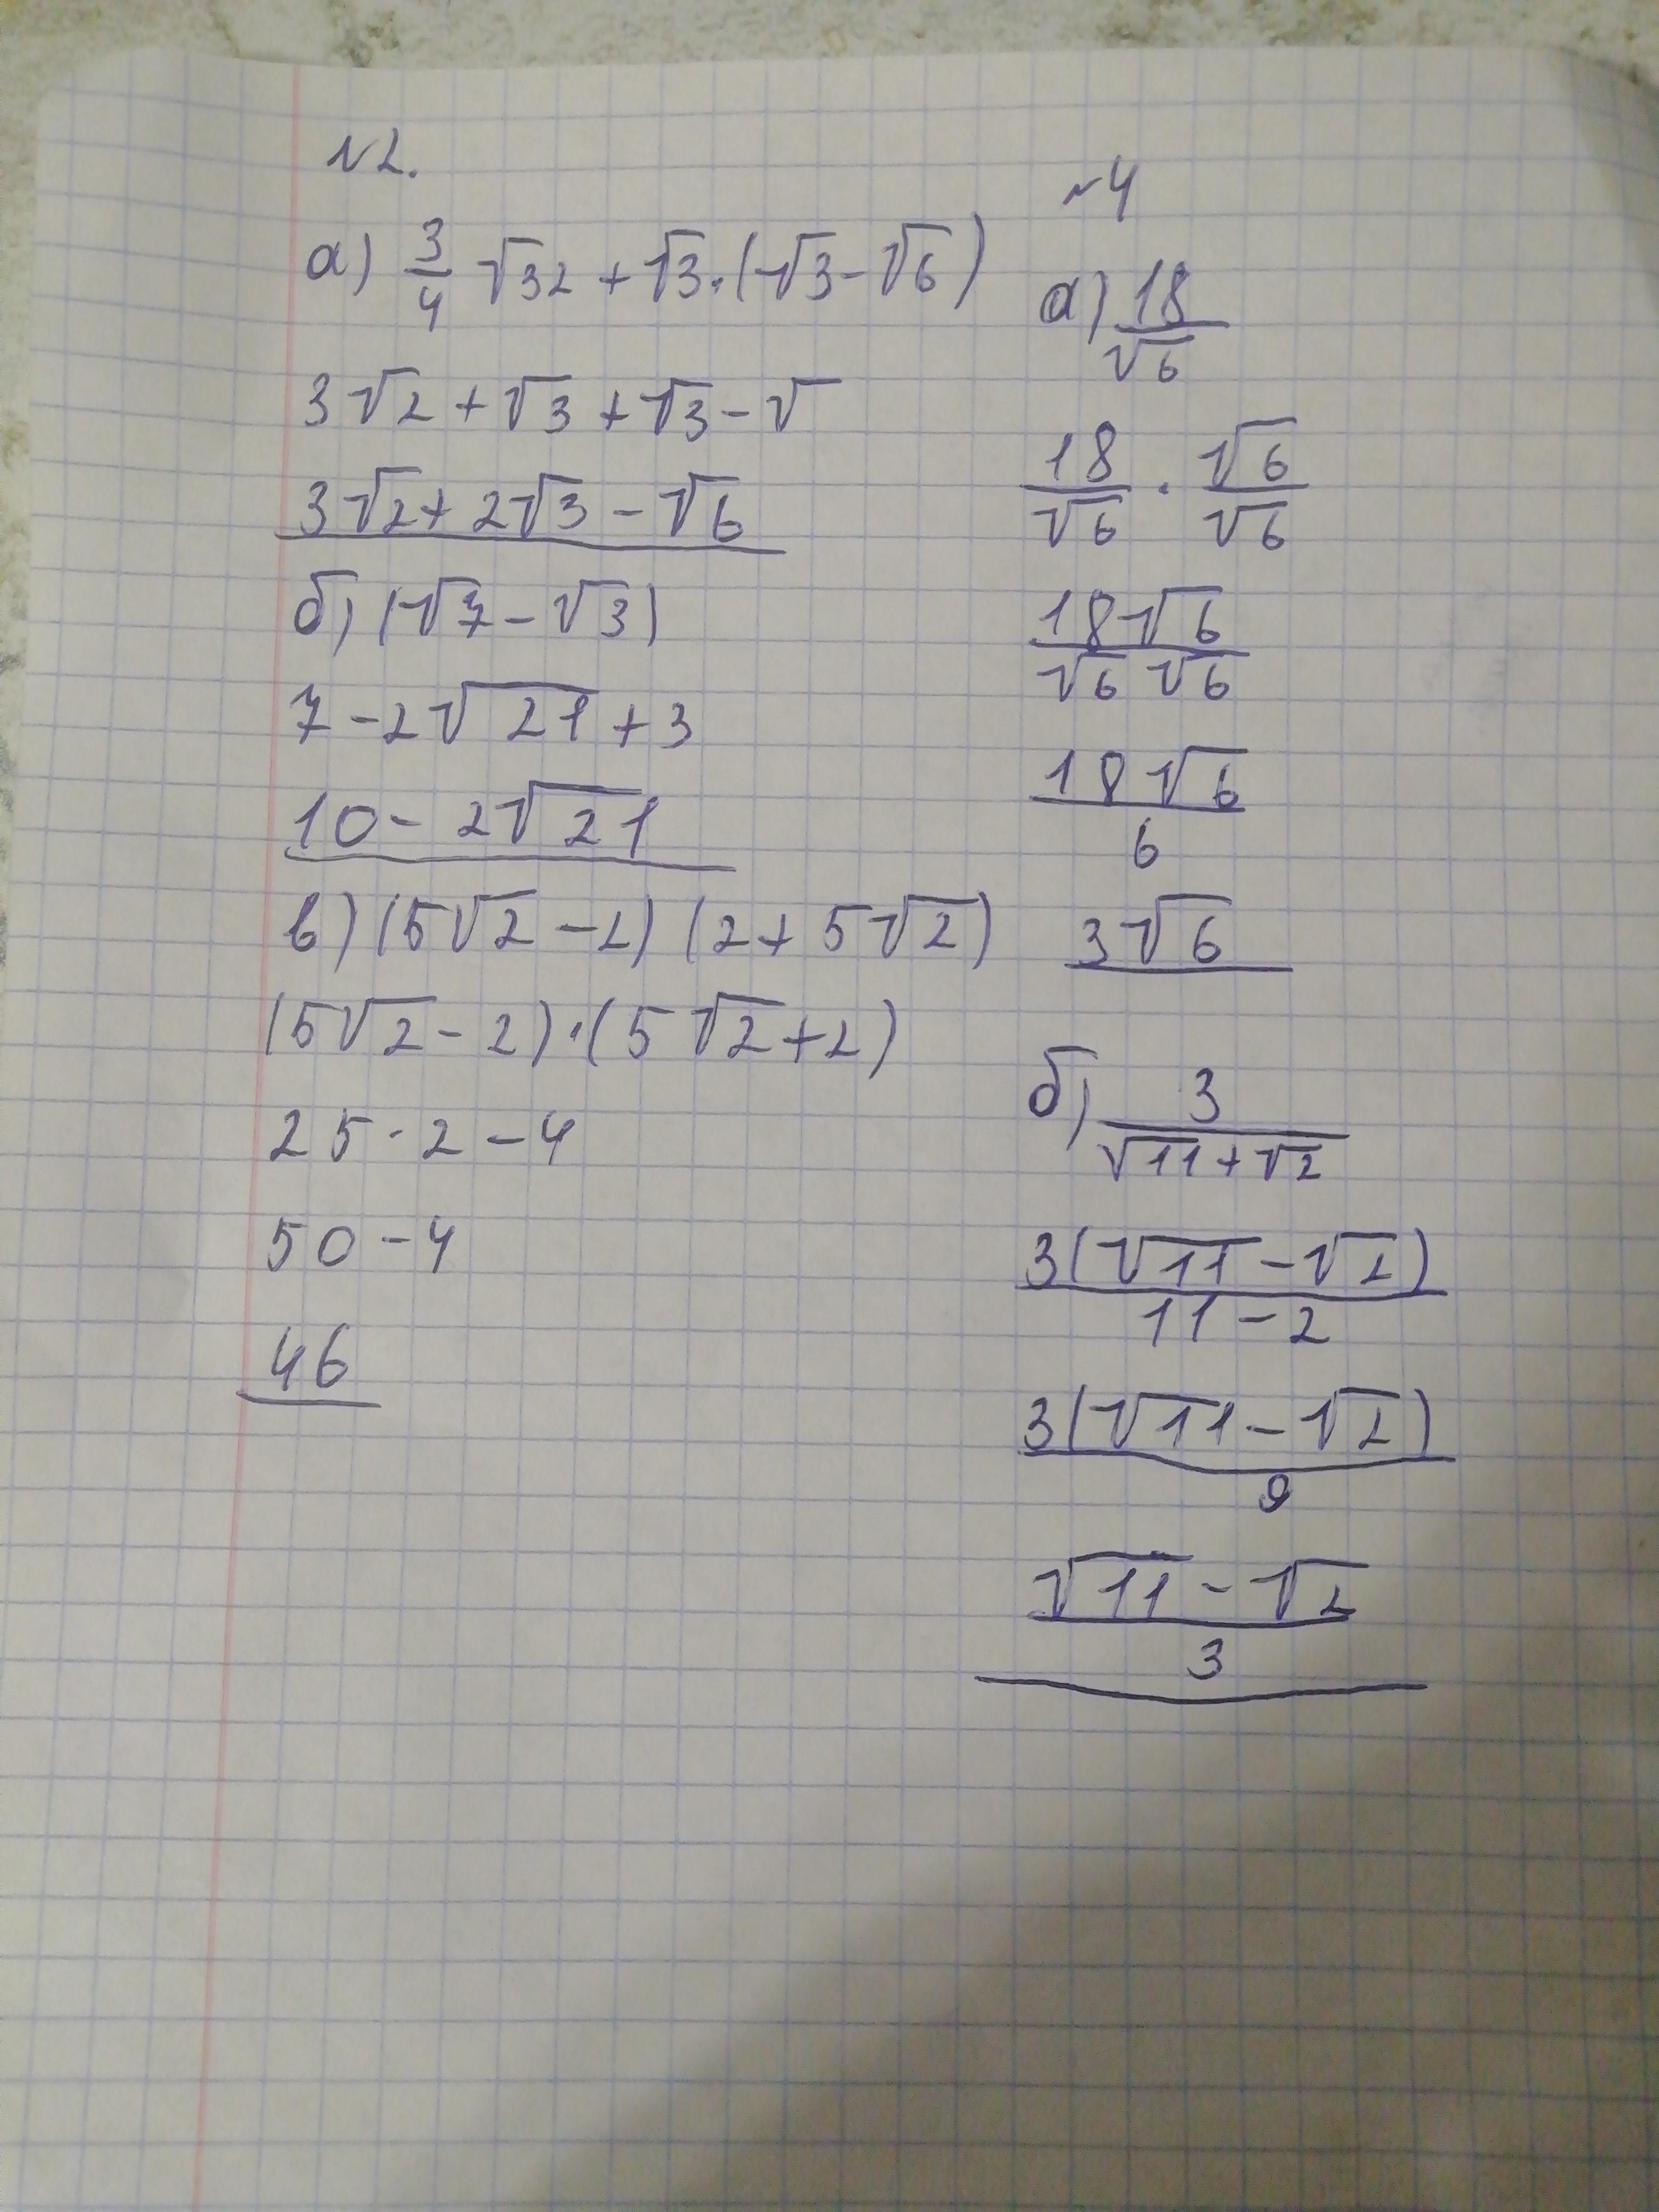 N2.
а) 3/4 √32 + √3·(√3-√6)
3√2 + √3 + √3 - √
3√2 + 2√3 - √6
б) (√7 - √3)
7 - 2√21 + 3
10 - 2√21
в) (5√2 - 2) (2 + 5√2)
(5√2 - 2)·(5√2 + 2)
25·2 - 4
50 - 4
46
N4
а) 18/√6
18/√6 · √6/√6
18√6/√6 √6
18√6/6
3√6
б) 3/(√11+√2)
3(√11 - √2)/(11 - 2)
3(√11 - √2)/9
(√11 - √2)/3